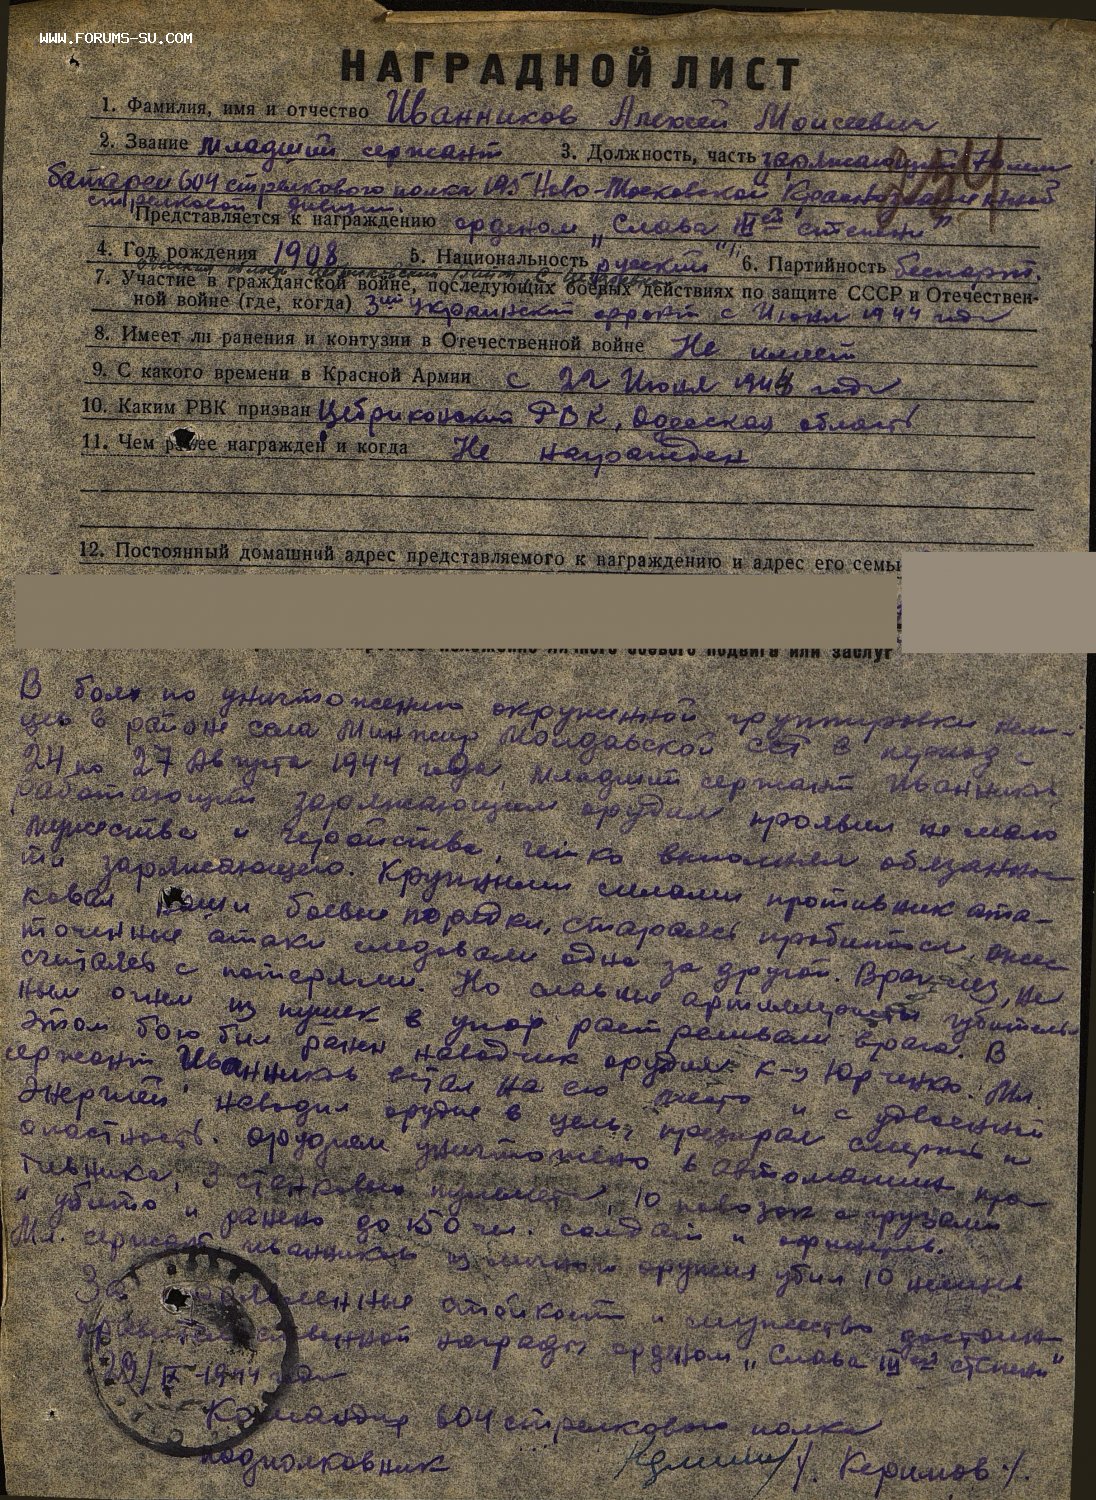 WWW.FORUMS-SU.COM
НАГРАДНОЙ ЛИСТ
1. Фамилия, имя и отчество Иванников Алексей Моисеевич
2. Звание младший сержант 3. Должность, часть заряжающий 76 мм
батареи 604 стрелкового полка 195 Ново-Московской Краснознаменной
стрелковой дивизии.
Представляется к награждению орденом „Слава III ей степени"
4. Год рождения 1908 5. Национальность русский 6. Партийность беспарт.
7. Участие в гражданской войне, последующих боевых действиях по защите СССР и Отечествен-
ной войне (где, когда) 3ий Украинский фронт с Июня 1944 года
8. Имеет ли ранения и контузии в Отечественной войне Не имеет
9. С какого времени в Красной Армии с 22 Июня 194 года
10. Каким РВК призван Цебриковский РВК, Одесская область
11. Чем ранее награжден и когда Не награжден
12. Постоянный домашний адрес представляемого к награждению и адрес его семьи
изложение личного боевого подвига или заслуг
В боях по уничтожению окруженной группировки нем-
цев в районе села Минжир Молдавской ССР в период с
24 по 27 Августа 1944 года, младший сержант Иванников
работающий заряжающим орудия проявил не мало
мужества и геройства, четко выполнял обязанно-
ти заряжающего. Крупными силами противник ата-
ковал наши боевые порядки, стараясь пробиться, ожес-
точенные атаки следовали одна за другой. Враг лез, не
считаясь с потерями. Но славные артиллеристы губитель-
ным огнем из пушек в упор растреливали врага. В
этом бою был ранен наводчик орудия к-ц Юрченко. Мл.
сержант Иванников встал на его место и с удвоенной
энергией наводил орудие в цель, презирая смерть и
опастность. орудием уничтожено 6 автомашин про-
тивника, 3 станковых пулемета, 10 повозок с грузами
и убито и ранено до 150 чел. солдат и офицеров.
Мл. сержант Иванников из личного оружия убил 10 немцев
За проявленные стойкость и мужество достоин
правительственной награды орденом „Слава III ей степени"
/IX-1944 года
Командир 604 стрелкового полка
подполковник /. Керимов ./.